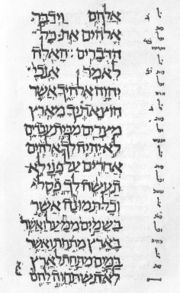 אלהם וידבר
אלהים את כל
הדברים האלה
לאמר אנכי
יהוה אלהיך אשר
הוצאתיך מארץ
מצרים מבית עבדים
לא יהיה לך אלהים
אחרים על פני לא
תעשה לך פסל
וכל תמונה אשר
בשמים ממעל ואשר
בארץ מתחת ואשר
במים מתחת לארץ
לא תשתחוה להם